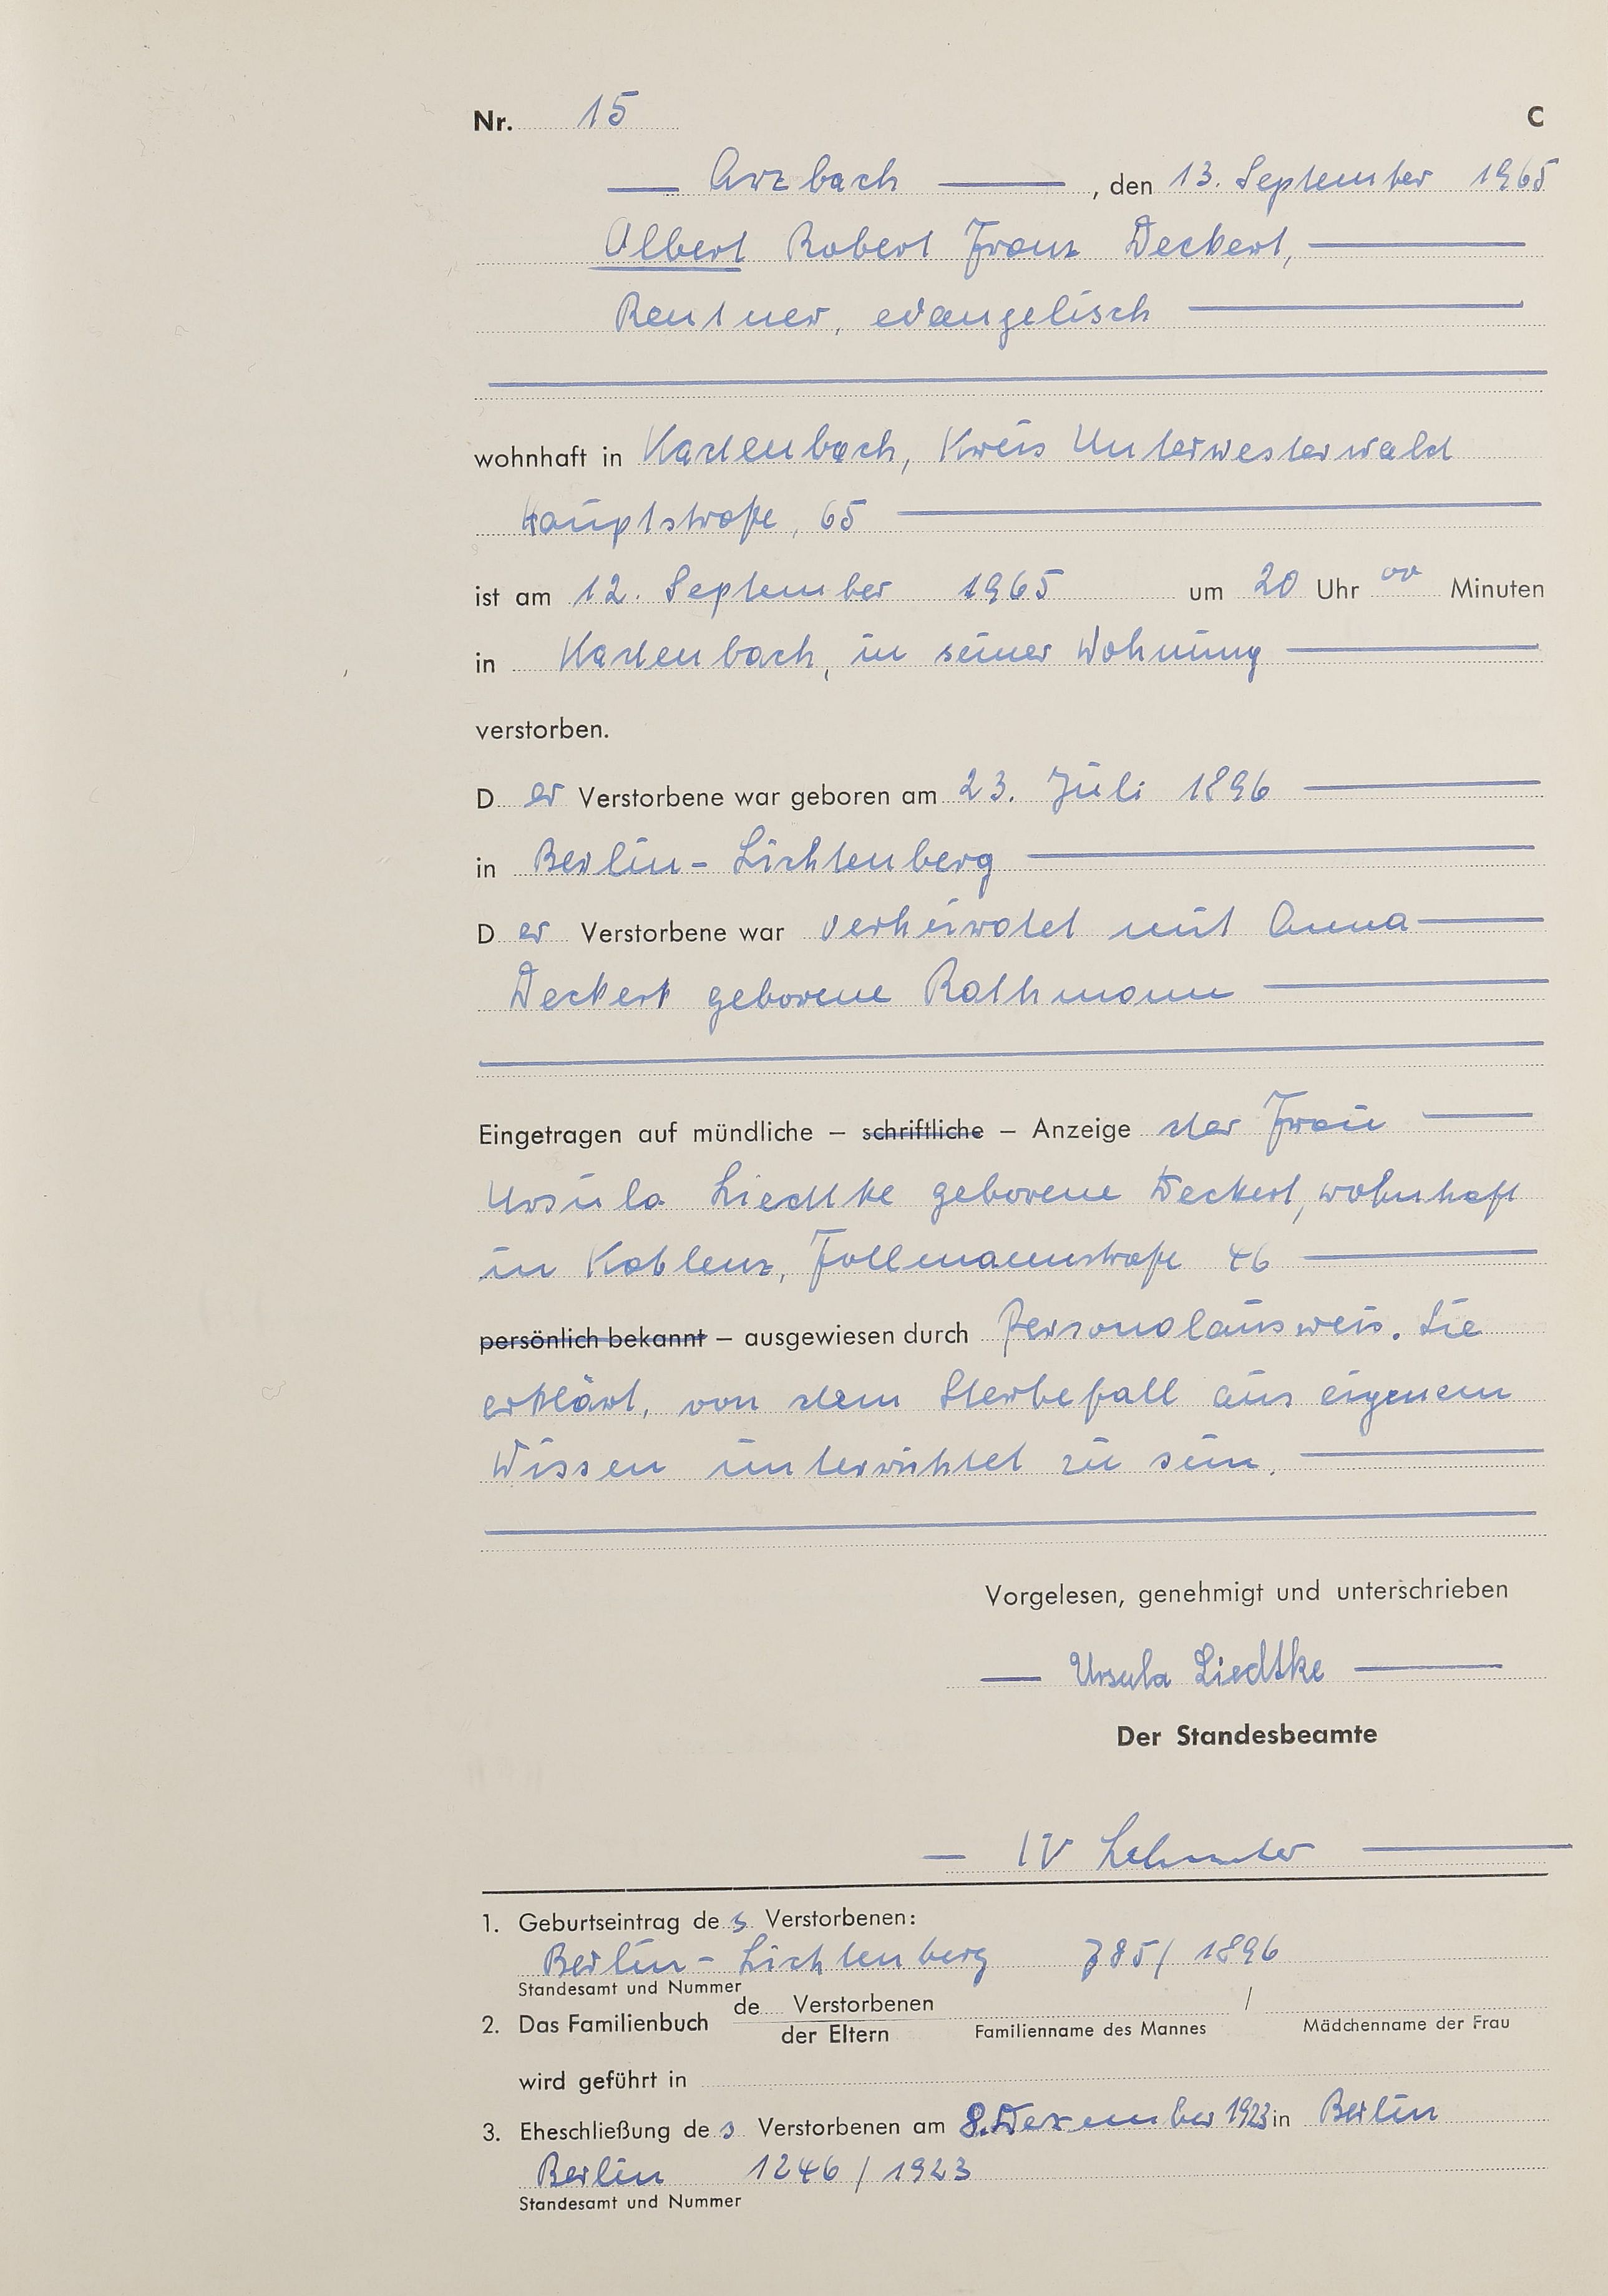 Nr. 15 C
Arzbach, den 13. September 1965
Albert Robert Franz Deckert,
Rentner, evangelisch
wohnhaft in Kadenbach, Kreis Unterwesterwald
Hauptstraße, 65
ist am 12. September 1965 um 20 Uhr 00 Minuten
in Kadenbach, in seiner Wohnung
verstorben.
Der Verstorbene war geboren am 23. Juli 1896
in Berlin-Lichtenberg
Der Verstorbene war verheiratet mit Anna
Deckert geborene Rathmann
Eingetragen auf mündliche – schriftliche – Anzeige der Frau
Ursula Liedtke geborene Deckert, wohnhaft
in Koblenz, Follmannstraße 46
persönlich bekannt – ausgewiesen durch Personalausweis. Sie
erklärt, von dem Sterbefall aus eigenem
Wissen unterrichtet zu sein.
Vorgelesen, genehmigt und unterschrieben
Ursula Liedtke
Der Standesbeamte
IV
1. Geburtseintrag des Verstorbenen:
Berlin-Lichtenberg 785/1896
Standesamt und Nummer
2. Das Familienbuch de Verstorbenen /
der Eltern Familienname des Mannes Mädchenname der Frau
wird geführt in
3. Eheschließung des Verstorbenen am 8. Dezember 1923 in Berlin
Berlin 1246/1923
Standesamt und Nummer